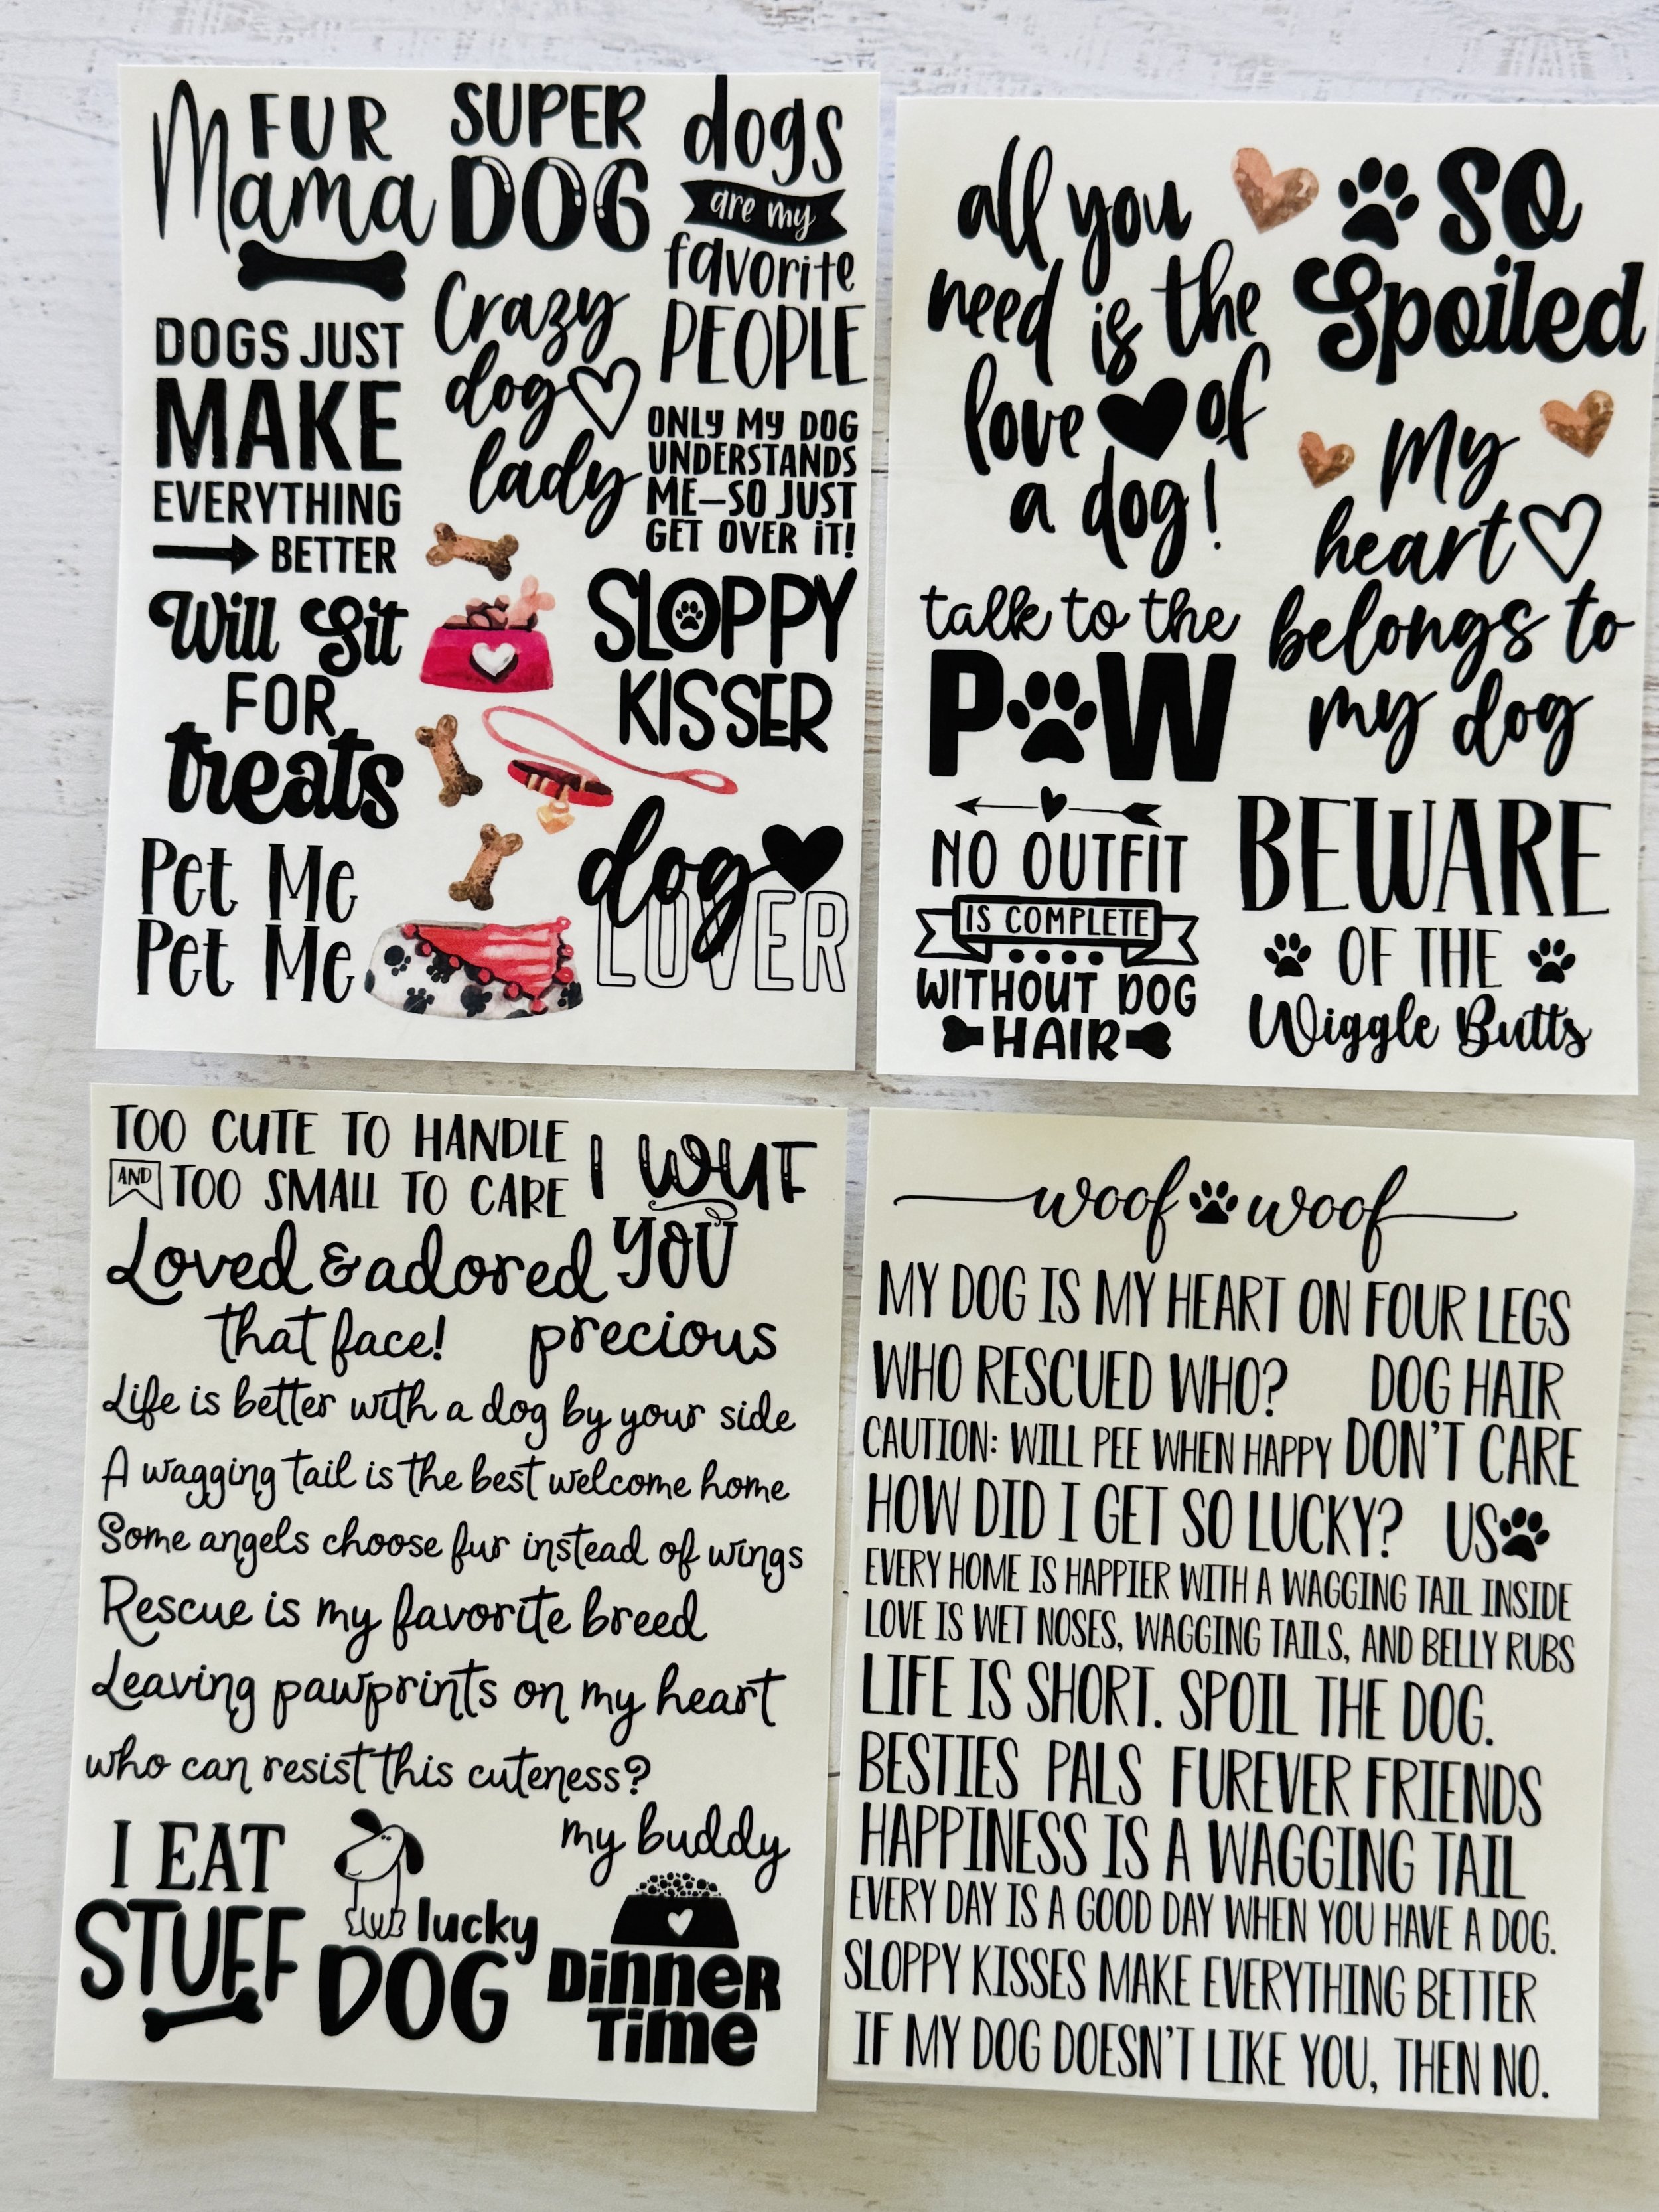 FUR
Mama
SUPER
DOG
dogs
are my
favorite
PEOPLE
DOGS JUST
MAKE
EVERYTHING
BETTER
Crazy
dog
lady
ONLY MY DOG
UNDERSTANDS
ME–SO JUST
GET OVER IT!
Will Sit
FOR
treats
SLOPPY
KISSER
Pet Me
Pet Me
dog
LOVER
all you
need is the
love of
a dog!
SO
Spoiled
My
heart
belongs to
my dog
talk to the
PAW
NO OUTFIT
IS COMPLETE
WITHOUT DOG
HAIR
BEWARE
OF THE
Wiggle Butts
TOO CUTE TO HANDLE
AND TOO SMALL TO CARE
I WUF
YOU
Loved & adored
that face!
precious
Life is better with a dog by your side
A wagging tail is the best welcome home
Some angels choose fur instead of wings
Rescue is my favorite breed
Leaving pawprints on my heart
who can resist this cuteness?
I EAT
STUFF
lucky
DOG
my buddy
Dinner
Time
woof woof
MY DOG IS MY HEART ON FOUR LEGS
WHO RESCUED WHO?
DOG HAIR
DON'T CARE
CAUTION: WILL PEE WHEN HAPPY
HOW DID I GET SO LUCKY?
US
EVERY HOME IS HAPPIER WITH A WAGGING TAIL INSIDE
LOVE IS WET NOSES, WAGGING TAILS, AND BELLY RUBS
LIFE IS SHORT. SPOIL THE DOG.
BESTIES PALS FUREVER FRIENDS
HAPPINESS IS A WAGGING TAIL
EVERY DAY IS A GOOD DAY WHEN YOU HAVE A DOG.
SLOPPY KISSES MAKE EVERYTHING BETTER
IF MY DOG DOESN'T LIKE YOU, THEN NO.